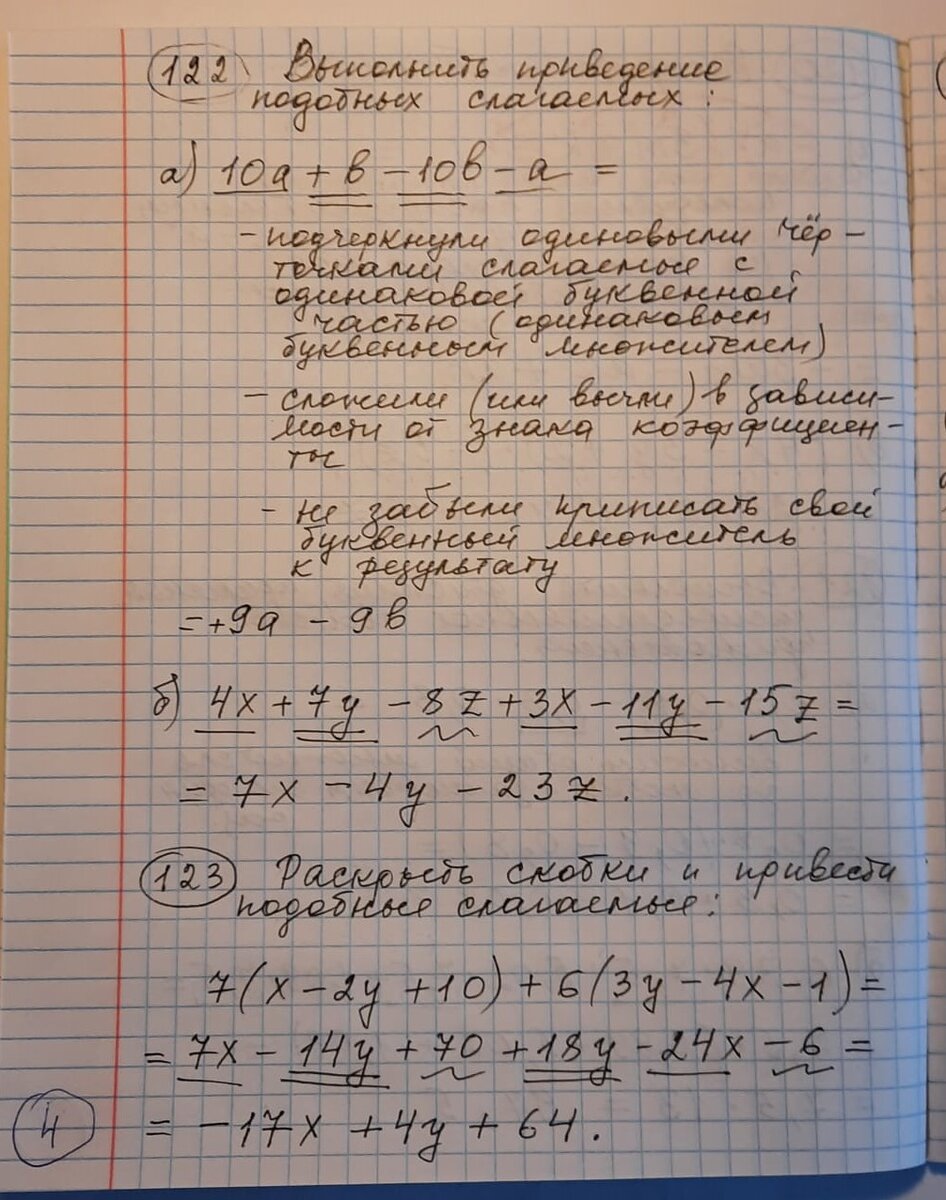 122 Выполнить приведение
подобных слагаемых:
а) 10a + b - 10b - a =
- подчеркнули одиновыми чёр-
точками слагаемые с
одинаковой буквенной
частью (одинаковым
буквенным множителем)
- сложили (или вычли) в зависи-
мости от знака коэффициен-
ты
- не забыли приписать свой
буквенный множитель
к результату
= +9a - 9b
б) 4x + 7y - 8z + 3x - 11y - 15z =
= 7x - 4y - 23z.
123 Раскрыть скобки и привести
подобные слагаемые:
7(x - 2y + 10) + 6(3y - 4x - 1) =
= 7x - 14y + 70 + 18y - 24x - 6 =
4 = -17x + 4y + 64.